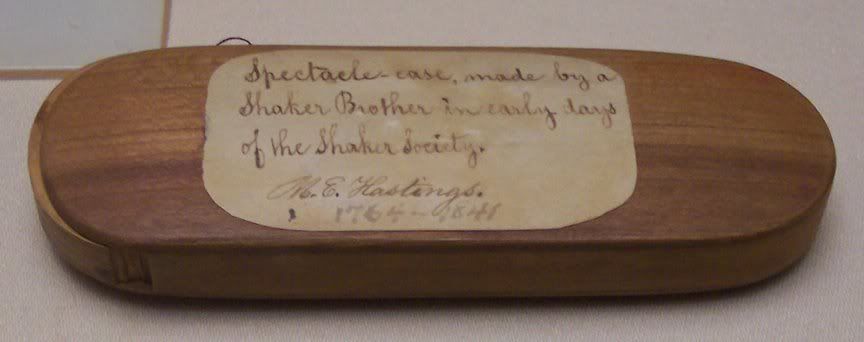 Spectacle-case, made by a
Shaker Brother in early days
of the Shaker Society.
M. E. Hastings.
1764-1841